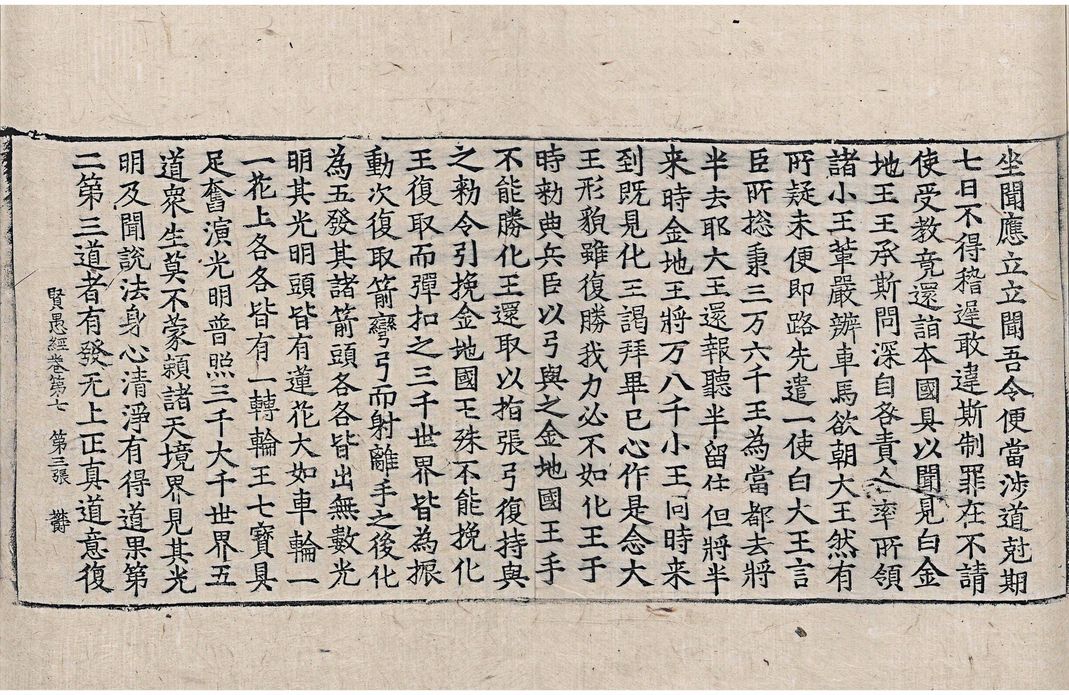 坐聞應立立聞吾令便當涉道尅期
七日不得稽遟敢違斯制罪在不請
使受教竟還詣本國具以聞見白金
地王王承斯問深自咎責合率所領
諸小王輩嚴辦車馬欲朝大王然有
所疑未便即路先遣一使白大王言
臣所捴秉三万六千王為當都去將
半去耶大王還報聽半留住但將半
来時金地王將万八千小王同時来
到既見化王謁拜畢已心作是念大
王形貌雖復勝我力必不如化王于
時勑典兵臣以弓與之金地國王手
不能勝化王還取以指張弓復持與
之勑令引挽金地國王殊不能挽化
王復取而彈扣之三千世界皆為振
動次復取箭彎弓而射離手之後化
為五發其諸箭頭各各皆出無數光
明其光明頭皆有蓮花大如車輪一
一花上各各皆有一轉輪王七寶具
足奮演光明普照三千大千世界五
道衆生莫不蒙頼諸天境界見其光
明及聞說法身心清淨有得道果第
二第三道者有發无上正真道意復
賢愚經卷第七 第三張 欝